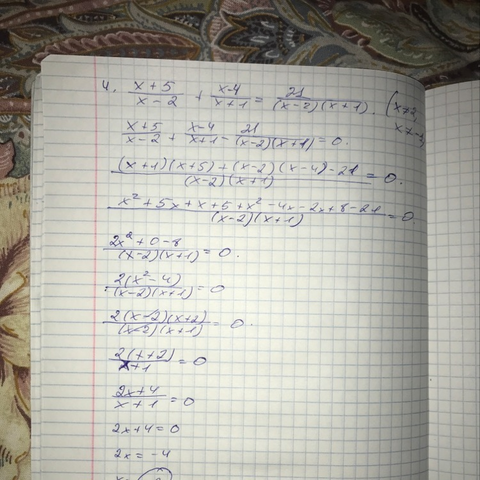 4. (x+5)/(x-2) + (x-4)/(x+1) = 21/((x-2)(x+1)). (x≠2,
x≠-1
(x+5)/(x-2) + (x-4)/(x+1) - 21/((x-2)(x+1)) = 0.
((x+1)(x+5)+(x-2)(x-4)-21)/((x-2)(x+1)) = 0.
(x²+5x+x+5+x²-4x-2x+8-21)/((x-2)(x+1)) = 0.
(2x²+0-8)/((x-2)(x+1)) = 0.
(2(x²-4))/((x-2)(x+1)) = 0
(2(x-2)(x+2))/((x-2)(x+1)) = 0.
(2(x+2))/(x+1) = 0
(2x+4)/(x+1) = 0
2x+4=0
2x=-4